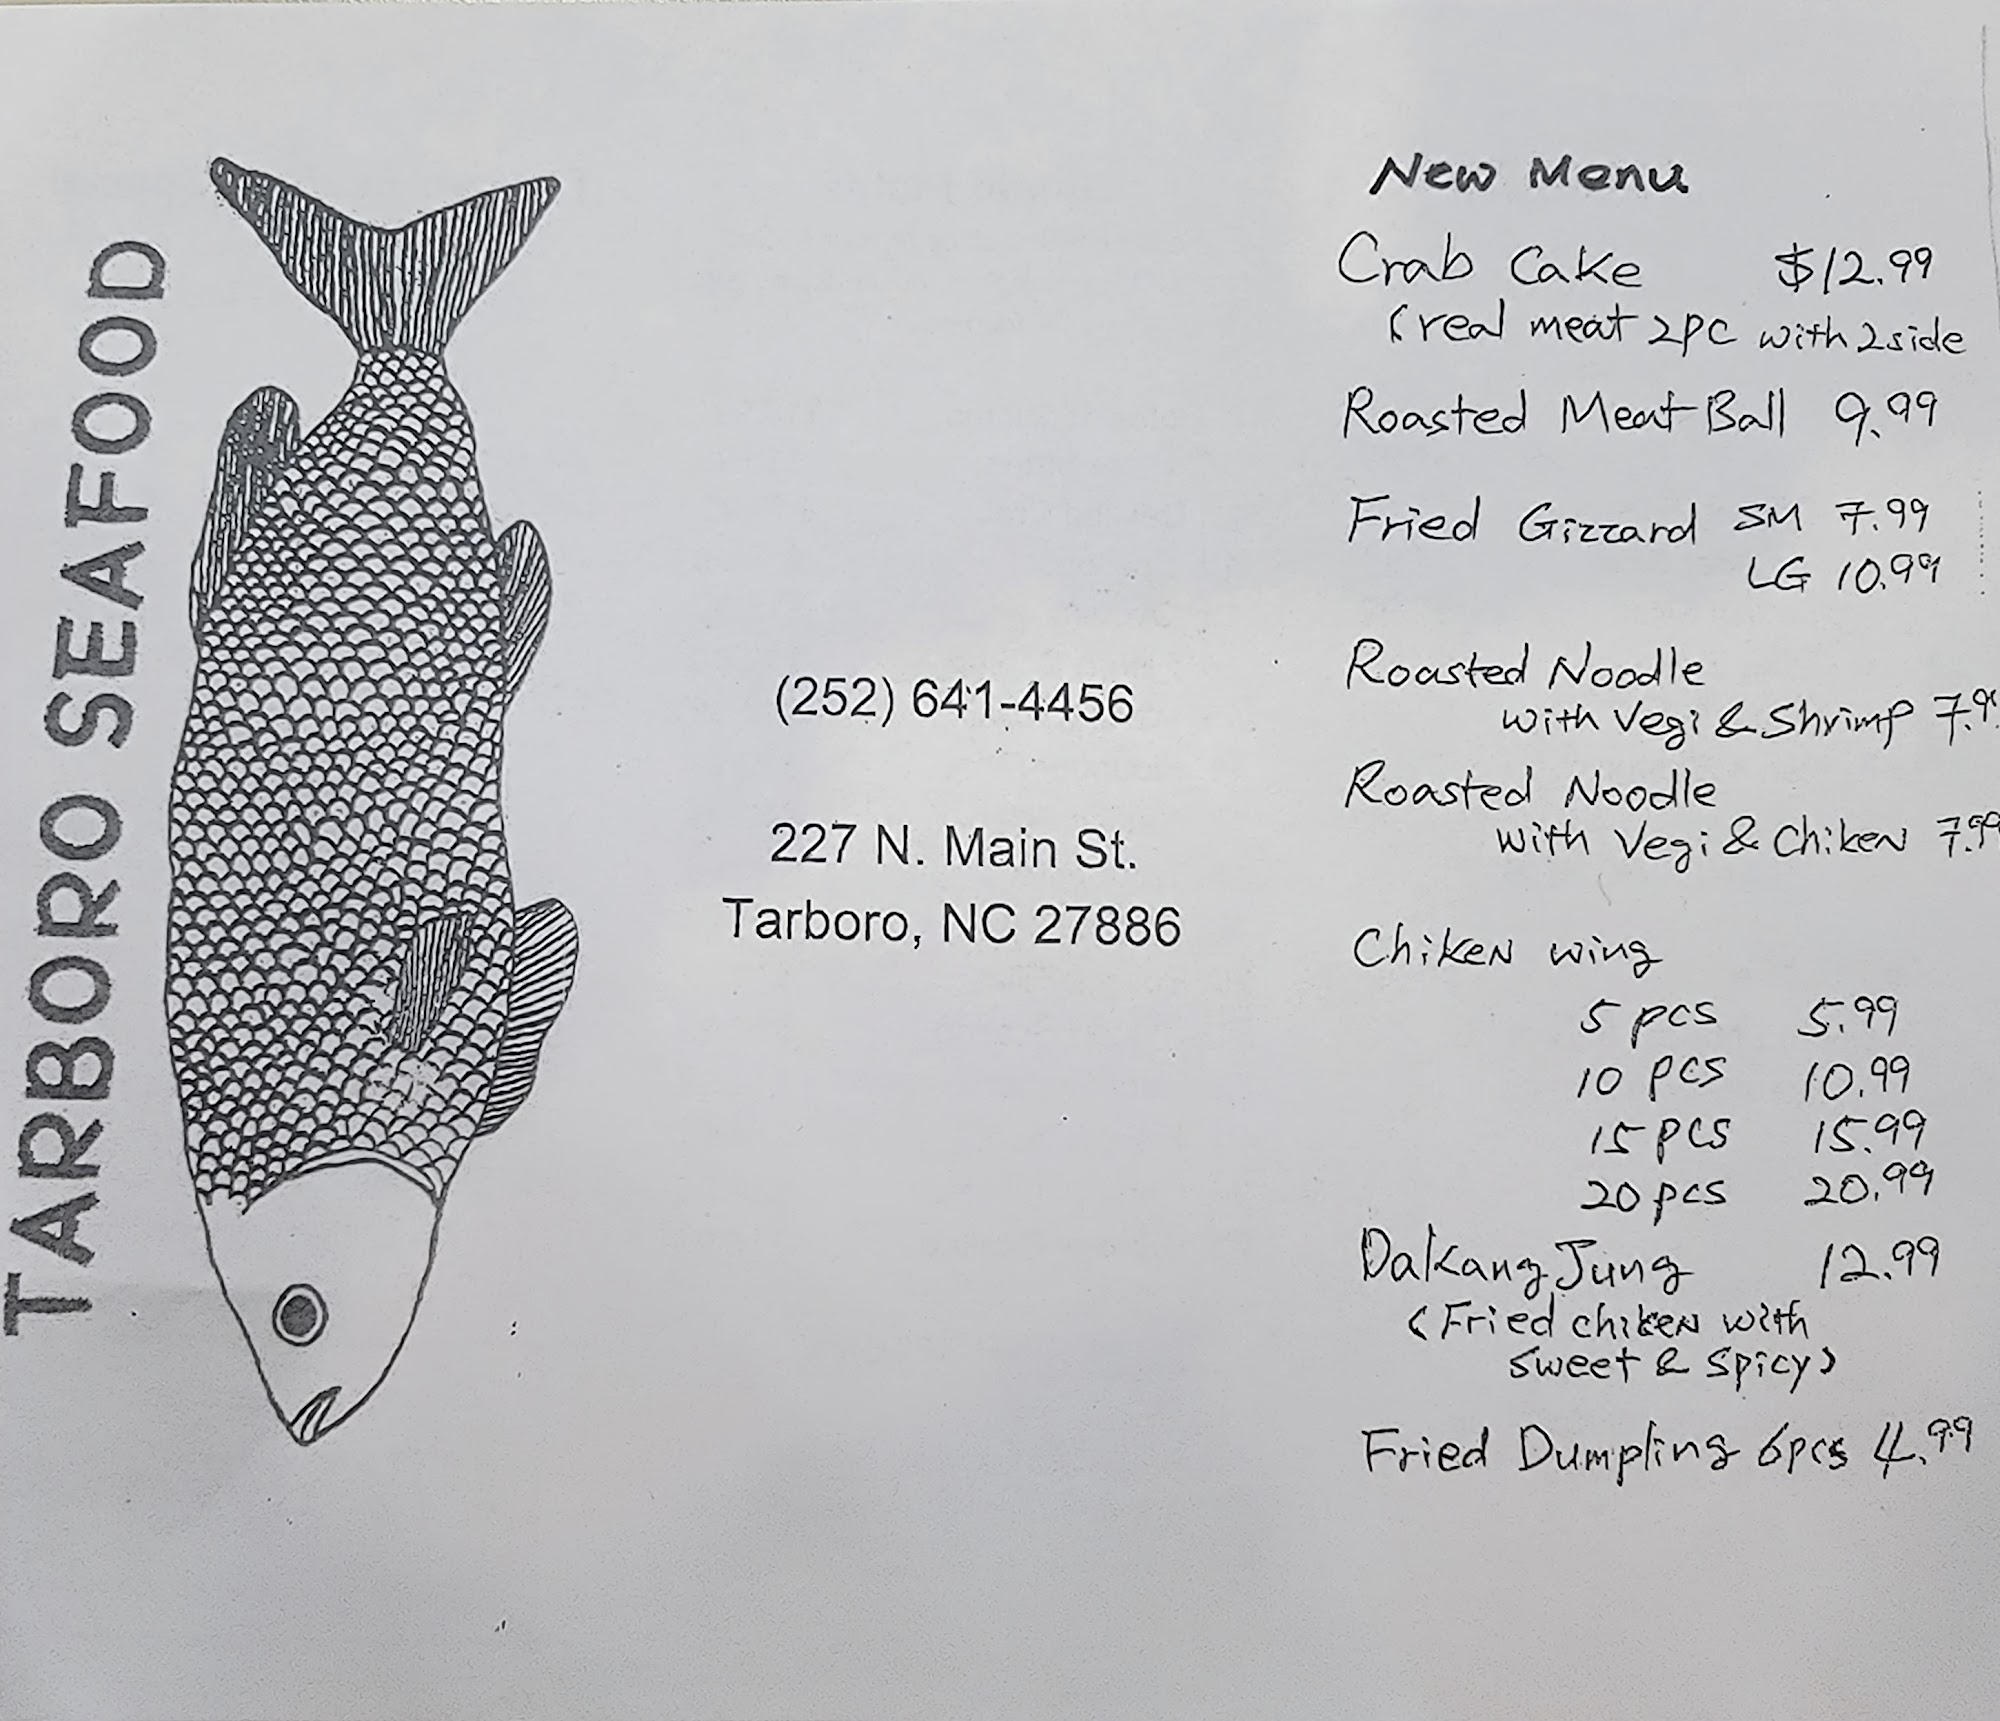 TARBORO SEAFOOD
(252) 641-4456
227 N. Main St.
Tarboro, NC 27886
New Menu
Crab Cake $12.99
(real meat 2pc with 2side
Roasted Meat Ball 9.99
Fried Gizzard SM 7.99
LG 10.99
Roasted Noodle
with Vegi & Shrimp 7.9
Roasted Noodle
with Vegi & Chiken 7.99
Chiken wing
5 pcs 5.99
10 pcs 10.99
15 pcs 15.99
20 pcs 20.99
Dakang Jung 12.99
(Fried chiken with
sweet & spicy)
Fried Dumpling 6pcs 4.99